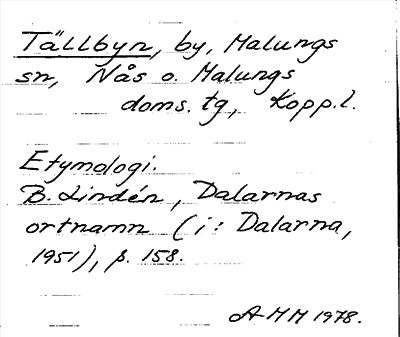 Tällbyn, by, Malungs
sn, Nås o. Malungs
doms. tg, Kopp.l.
Etymologi.
B. Lindén, Dalarnas
ortnamn (i: Dalarna,
1951), s. 158.
A-MH 1978.